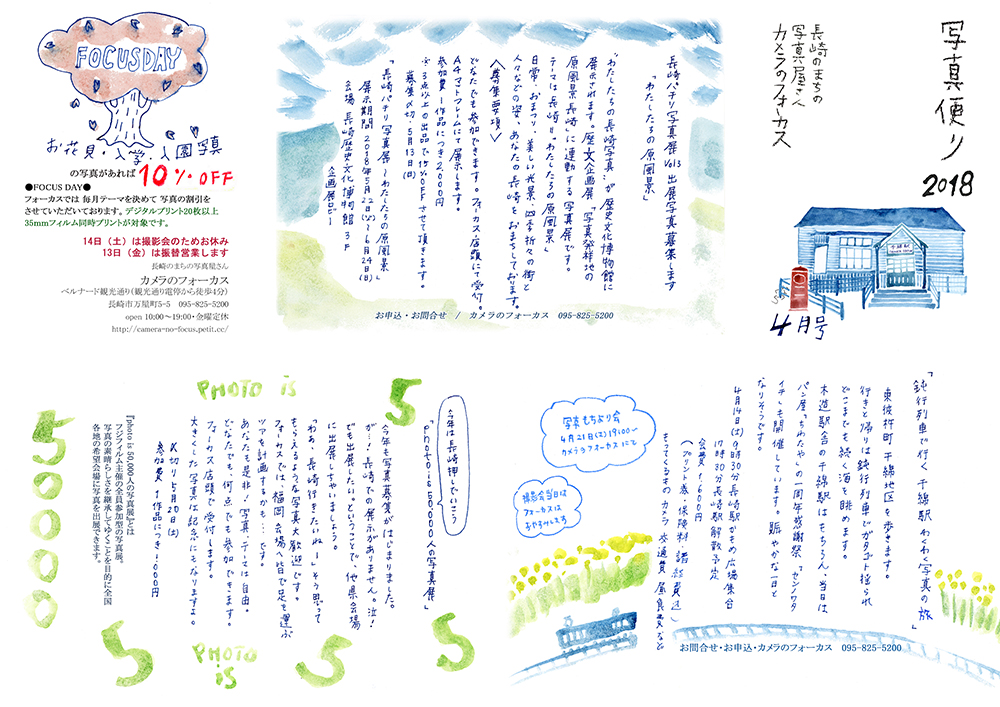 写真便り
長崎のまちの
写真屋さん
カメラのフォーカス
2018
4月号
長崎バチリ写真展 Vol3 出展写真募集します
「わたしたちの原風景」
"わたしたちの長崎写真"が歴史文化博物館に
展示されます。歴文企画展「写真発祥地の
原風景 長崎」に連動する写真展です。
テーマは長崎=“わたしたちの原風景”
日常、おまつり、美しい光景、四季折々の街と
人々などの姿。あなたの長崎をおまちしております。
〈募集要項〉
どなたでも参加できます。フォーカス店頭にて受付。
A4マットフレームにて展示します。
参加費 1作品につき2,000円
※3点以上の出品で15%OFFさせて頂きます。
募集〆切 5月13日(日)
「長崎バチリ写真展〜わたしたちの原風景」
展示期間 2018年5月22日(火)〜6月24日(日)
会場 長崎歴史文化博物館 3F
企画展ロビー
お申込・お問合せ / カメラのフォーカス 095-825-5200
FOCUSDAY
お花見・入学・入園写真
の写真があれば 10% OFF
●FOCUS DAY●
フォーカスでは 毎月テーマを決めて 写真の割引を
させていただいております。デジタルプリント20枚以上
35mmフィルム同時プリントが対象です。
14日(土)は撮影会のためお休み
13日(金)は振替営業します
長崎のまちの写真屋さん
カメラのフォーカス
ベルナード観光通り(観光通り電停から徒歩4分)
長崎市万屋町5-5 095-825-5200
open 10:00〜19:00・金曜定休
http://camera-no-focus.petit.cc/
「鈍行列車で行く 千綿駅 わくわく写真の旅」
東彼杵町 千綿地区を歩きます。
行きと帰りは鈍行列車でガタゴト揺られ
どこまでも続く海を眺めます。
木造駅舎の千綿駅はもちろん、当日は
パン屋「ちわたや」の一周年感謝祭、「センノワタ
イチ」も開催しています。賑やかな一日と
なりそうです。
4月14日(土)9時30分長崎駅かもめ広場集合
17時30分長崎駅解散予定
会費 1,600円
(プリント券・保険料・諸経費込)
もってくるもの カメラ 交通費 昼食費など
写真もちより会
4月21日(土)19:00〜
カメラのフォーカスにて
撮影会当日は
フォーカスは
おやすみします
お問合せ・お申込・カメラのフォーカス 095-825-5200
PHOTO is
5
50000
今年は長崎押しでいこう
「photo is 50000人の写真展」
今年も写真募集がはじまりました。
が…!長崎での展示がありません。泣!
でも出展したい。ということで、他県会場
に出展しちゃいましょう。
「わぁ、長崎行きたいねー」そう思って
もらえるような写真大歓迎です。
フォーカスでは、福岡会場へ皆で足を運ぶ
ツアを計画するかも…です。
あなたも是非!写真、テーマは自由。
どなたでも、何点でも参加できます。
フォーカス店頭で受付します。
大きくした写真は記念にもなりますよ。
〆切り 5月20日(土)
参加費 1作品につき1,000円
『photo is 50,000人の写真展』とは
フジフイルム主催の全員参加型の写真展。
写真の素晴らしさを継承してゆくことを目的に全国
各地の希望会場に写真を出展できます。
5
PHOTO
is
5
5